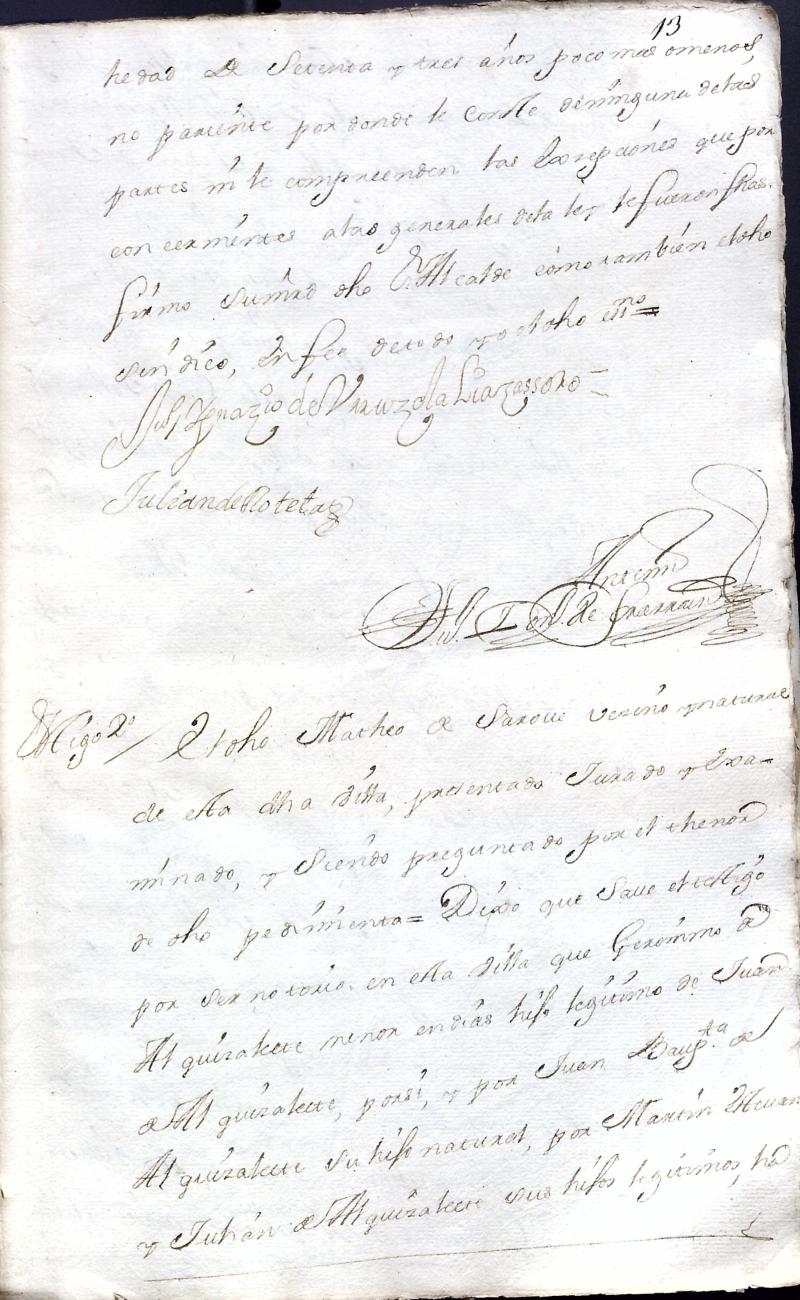 13
hedad de Setenta y tres años poco mas omenos,
no pariente por donde le Conste deninguna delas
partes ni le compreenden las Excepciones que por
concernientes alas generales dela ley lefueron fhas.
firmo Sumrd dho Alcalde como tambien el dho
sindico, en fee de todo yo el dho essno =
Ignazio de Uruzola Liazassoro =
Julian de Roteta
Antemi
Testigo 2º / El dho Matheo de Sarove vezino y natural
de esta dha Villa, presentado Jurado y Exa=
minado, y Siendo preguntado por el thenor
de dho pedimiento = Dixo que Save el testigo
por ser notorio en esta Villa que Geronimo de
Alquizalete menor en dias hijo legitimo de Juan
de Alquizalete, por si, y por Juan Baupta de
Alquizalete su hijo natural, por Martin Ygnan
y Julian de Alquizalete sus hijos legitimos, ha